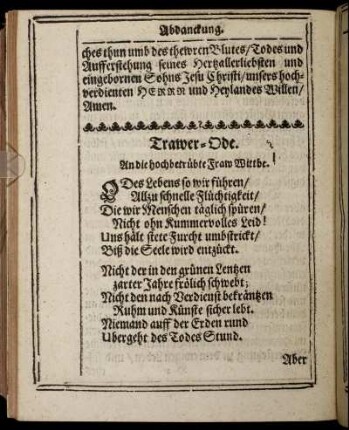 Abdanckung.
ches thun umb des thewren Blutes/ Todes und
Aufferstehung seines Hertzallerliebsten und
eingebornen Sohns Jesu Christi/ unsers hoch-
verdienten HERRN und Heylandes Willen/
Amen.
Trawer-Ode.
An die hochbetrübte Fraw Wittbe.
O Des Lebens so wir führen/
Allzu schnelle Flüchtigkeit/
Die wir Menschen täglich spüren/
Nicht ohn Kummervolles Leid!
Uns hält stete Furcht umbstrickt/
Biß die Seele wird entzückt.
Nicht der in den grünen Lentzen
zarter Jahre frölich schwebt;
Nicht den nach Verdienst bekräntzen
Ruhm und Künste sicher lebt.
Niemand auff der Erden rund
Ubergeht des Todes Stund.
Aber